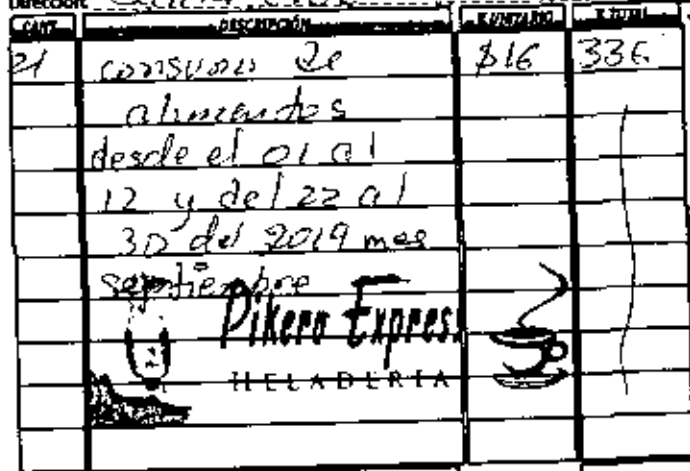 Dirección:
CANT. DESCRIPCIÓN P. UNITARIO P. TOTAL
21 consumo de $16 336
alimentos
desde el 01 al
12 y del 22 al
30 del 2019 mes
septiembre
Pikero Express
HELADERIA